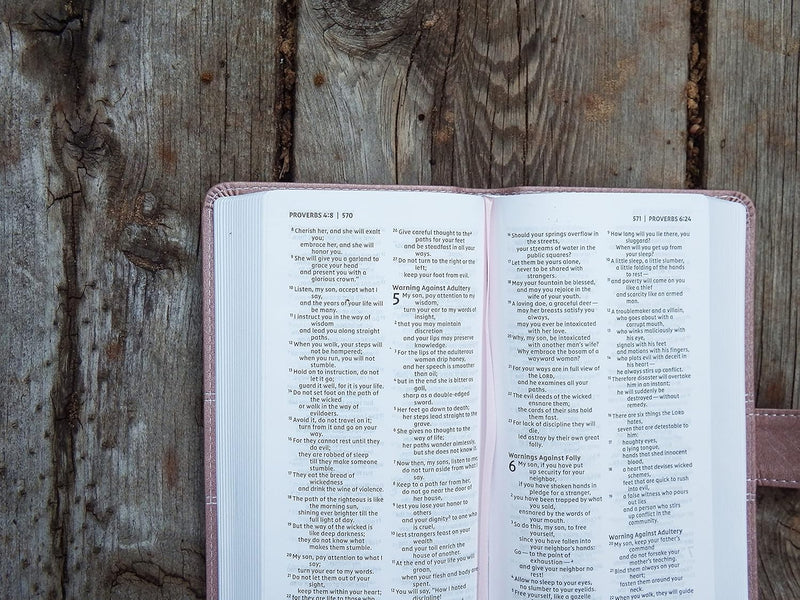 PROVERBS 4:8 | 570
8 Cherish her, and she will exalt
you;
embrace her, and she will
honor you.
9 She will give you a garland to
grace your head
and present you with a
glorious crown."
10 Listen, my son, accept what I
say,
and the years of your life will
be many.
11 I instruct you in the way of
wisdom
and lead you along straight
paths.
12 When you walk, your steps will
not be hampered;
when you run, you will not
stumble.
13 Hold on to instruction, do not
let it go;
guard it well, for it is your life.
14 Do not set foot on the path of
the wicked
or walk in the way of
evildoers.
15 Avoid it, do not travel on it;
turn from it and go on your
way.
16 For they cannot rest until they
do evil;
they are robbed of sleep
till they make someone
stumble.
17 They eat the bread of
wickedness
and drink the wine of violence.
18 The path of the righteous is like
the morning sun,
shining ever brighter till the
full light of day.
19 But the way of the wicked is
like deep darkness;
they do not know what
makes them stumble.
20 My son, pay attention to what I
say;
turn your ear to my words.
21 Do not let them out of your
sight,
keep them within your heart;
22 for they are life to those who
26 Give careful thought to the
paths for your feet
and be steadfast in all your
ways.
27 Do not turn to the right or the
left;
keep your foot from evil.
Warning Against Adultery
5 My son, pay attention to my
wisdom,
turn your ear to my words of
insight,
2 that you may maintain
discretion
and your lips may preserve
knowledge.
3 For the lips of the adulterous
woman drip honey,
and her speech is smoother
than oil;
4 but in the end she is bitter as
gall,
sharp as a double-edged
sword.
5 Her feet go down to death;
her steps lead straight to the
grave.
6 She gives no thought to the
way of life;
her paths wander aimlessly,
but she does not know it.
7 Now then, my sons, listen to me;
do not turn aside from what I
say.
8 Keep to a path far from her,
do not go near the door of
her house,
9 lest you lose your honor to
others
and your dignity to one who
is cruel,
10 lest strangers feast on your
wealth
and your toil enrich the
house of another.
11 At the end of your life you will
groan,
when your flesh and body are
spent.
12 You will say, "How I hated
discipline!
571 | PROVERBS 6:24
16 Should your springs overflow in
the streets,
your streams of water in the
public squares?
17 Let them be yours alone,
never to be shared with
strangers.
18 May your fountain be blessed,
and may you rejoice in the
wife of your youth.
19 A loving doe, a graceful deer—
may her breasts satisfy you
always,
may you ever be intoxicated
with her love.
20 Why, my son, be intoxicated
with another man's wife?
Why embrace the bosom of a
wayward woman?
21 For your ways are in full view of
the LORD,
and he examines all your
paths.
22 The evil deeds of the wicked
ensnare them;
the cords of their sins hold
them fast.
23 For lack of discipline they will
die,
led astray by their own great
folly.
Warnings Against Folly
6 My son, if you have put
up security for your
neighbor,
if you have shaken hands in
pledge for a stranger,
2 you have been trapped by what
you said,
ensnared by the words of
your mouth.
3 So do this, my son, to free
yourself,
since you have fallen into
your neighbor's hands:
Go—to the point of
exhaustion—
and give your neighbor no
rest!
4 Allow no sleep to your eyes,
no slumber to your eyelids.
5 Free yourself, like a gazelle
9 How long will you lie there, you
sluggard?
When will you get up from
your sleep?
10 A little sleep, a little slumber,
a little folding of the hands
to rest—
11 and poverty will come on you
like a thief
and scarcity like an armed
man.
12 A troublemaker and a villain,
who goes about with a
corrupt mouth,
13 who winks maliciously with
his eye,
signals with his feet
and motions with his fingers,
14 who plots evil with deceit in
his heart—
he always stirs up conflict.
15 Therefore disaster will overtake
him in an instant;
he will suddenly be
destroyed—without
remedy.
16 There are six things the LORD
hates,
seven that are detestable to
him:
17 haughty eyes,
a lying tongue,
hands that shed innocent
blood,
18 a heart that devises wicked
schemes,
feet that are quick to rush
into evil,
19 a false witness who pours
out lies
and a person who stirs
up conflict in the
community.
Warning Against Adultery
20 My son, keep your father's
command
and do not forsake your
mother's teaching.
21 Bind them always on your
heart;
fasten them around your
neck.
22 When you walk, they will guide